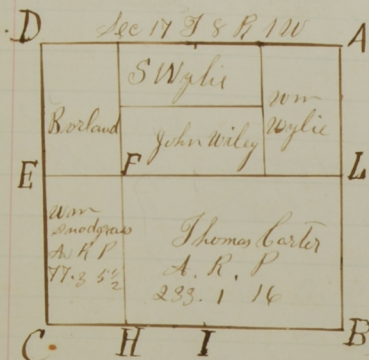 D Sec 17 T 8 R 1 W A
S Wylie
Wm
Wylie
Borland
John Wiley
E F L
Wm
Snodgrass
A. R P
77. 3 5½
Thomas Carter
A. R. P
233. 1 16
C H I B